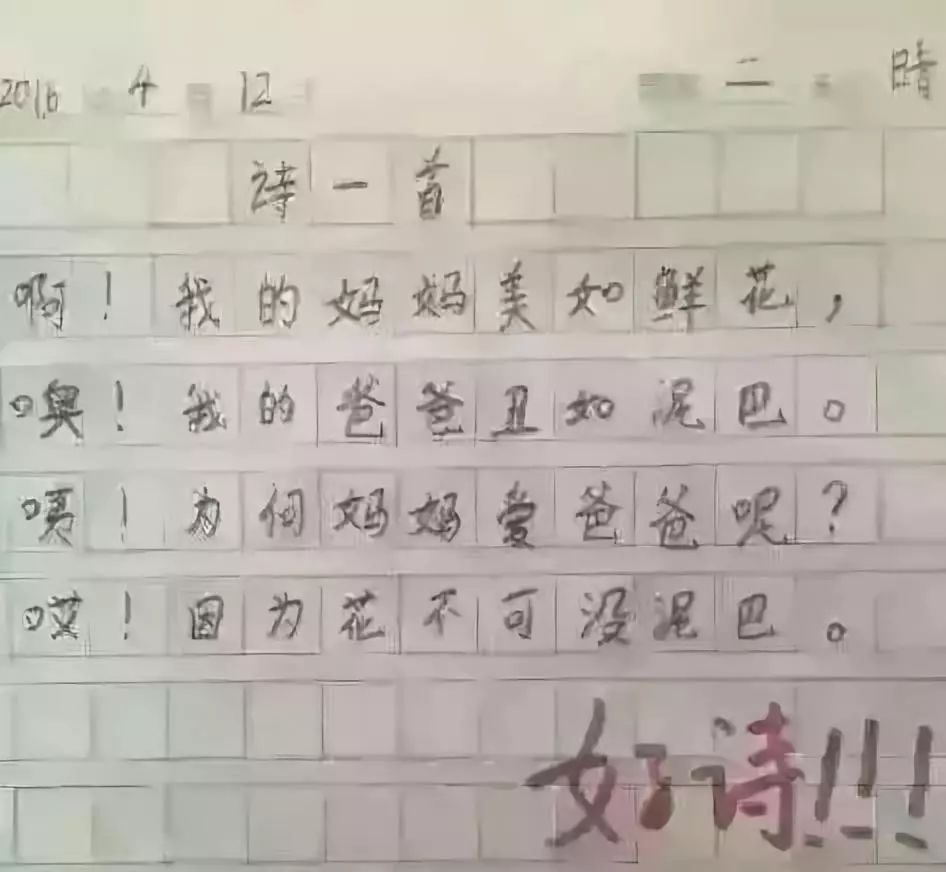 2016 4 12 二 晴
诗一首
啊！我的妈妈美如鲜花，
噢！我的爸爸丑如泥巴。
！为何妈妈爱爸爸呢？
哎！因为花不可没泥巴。
好诗!!!